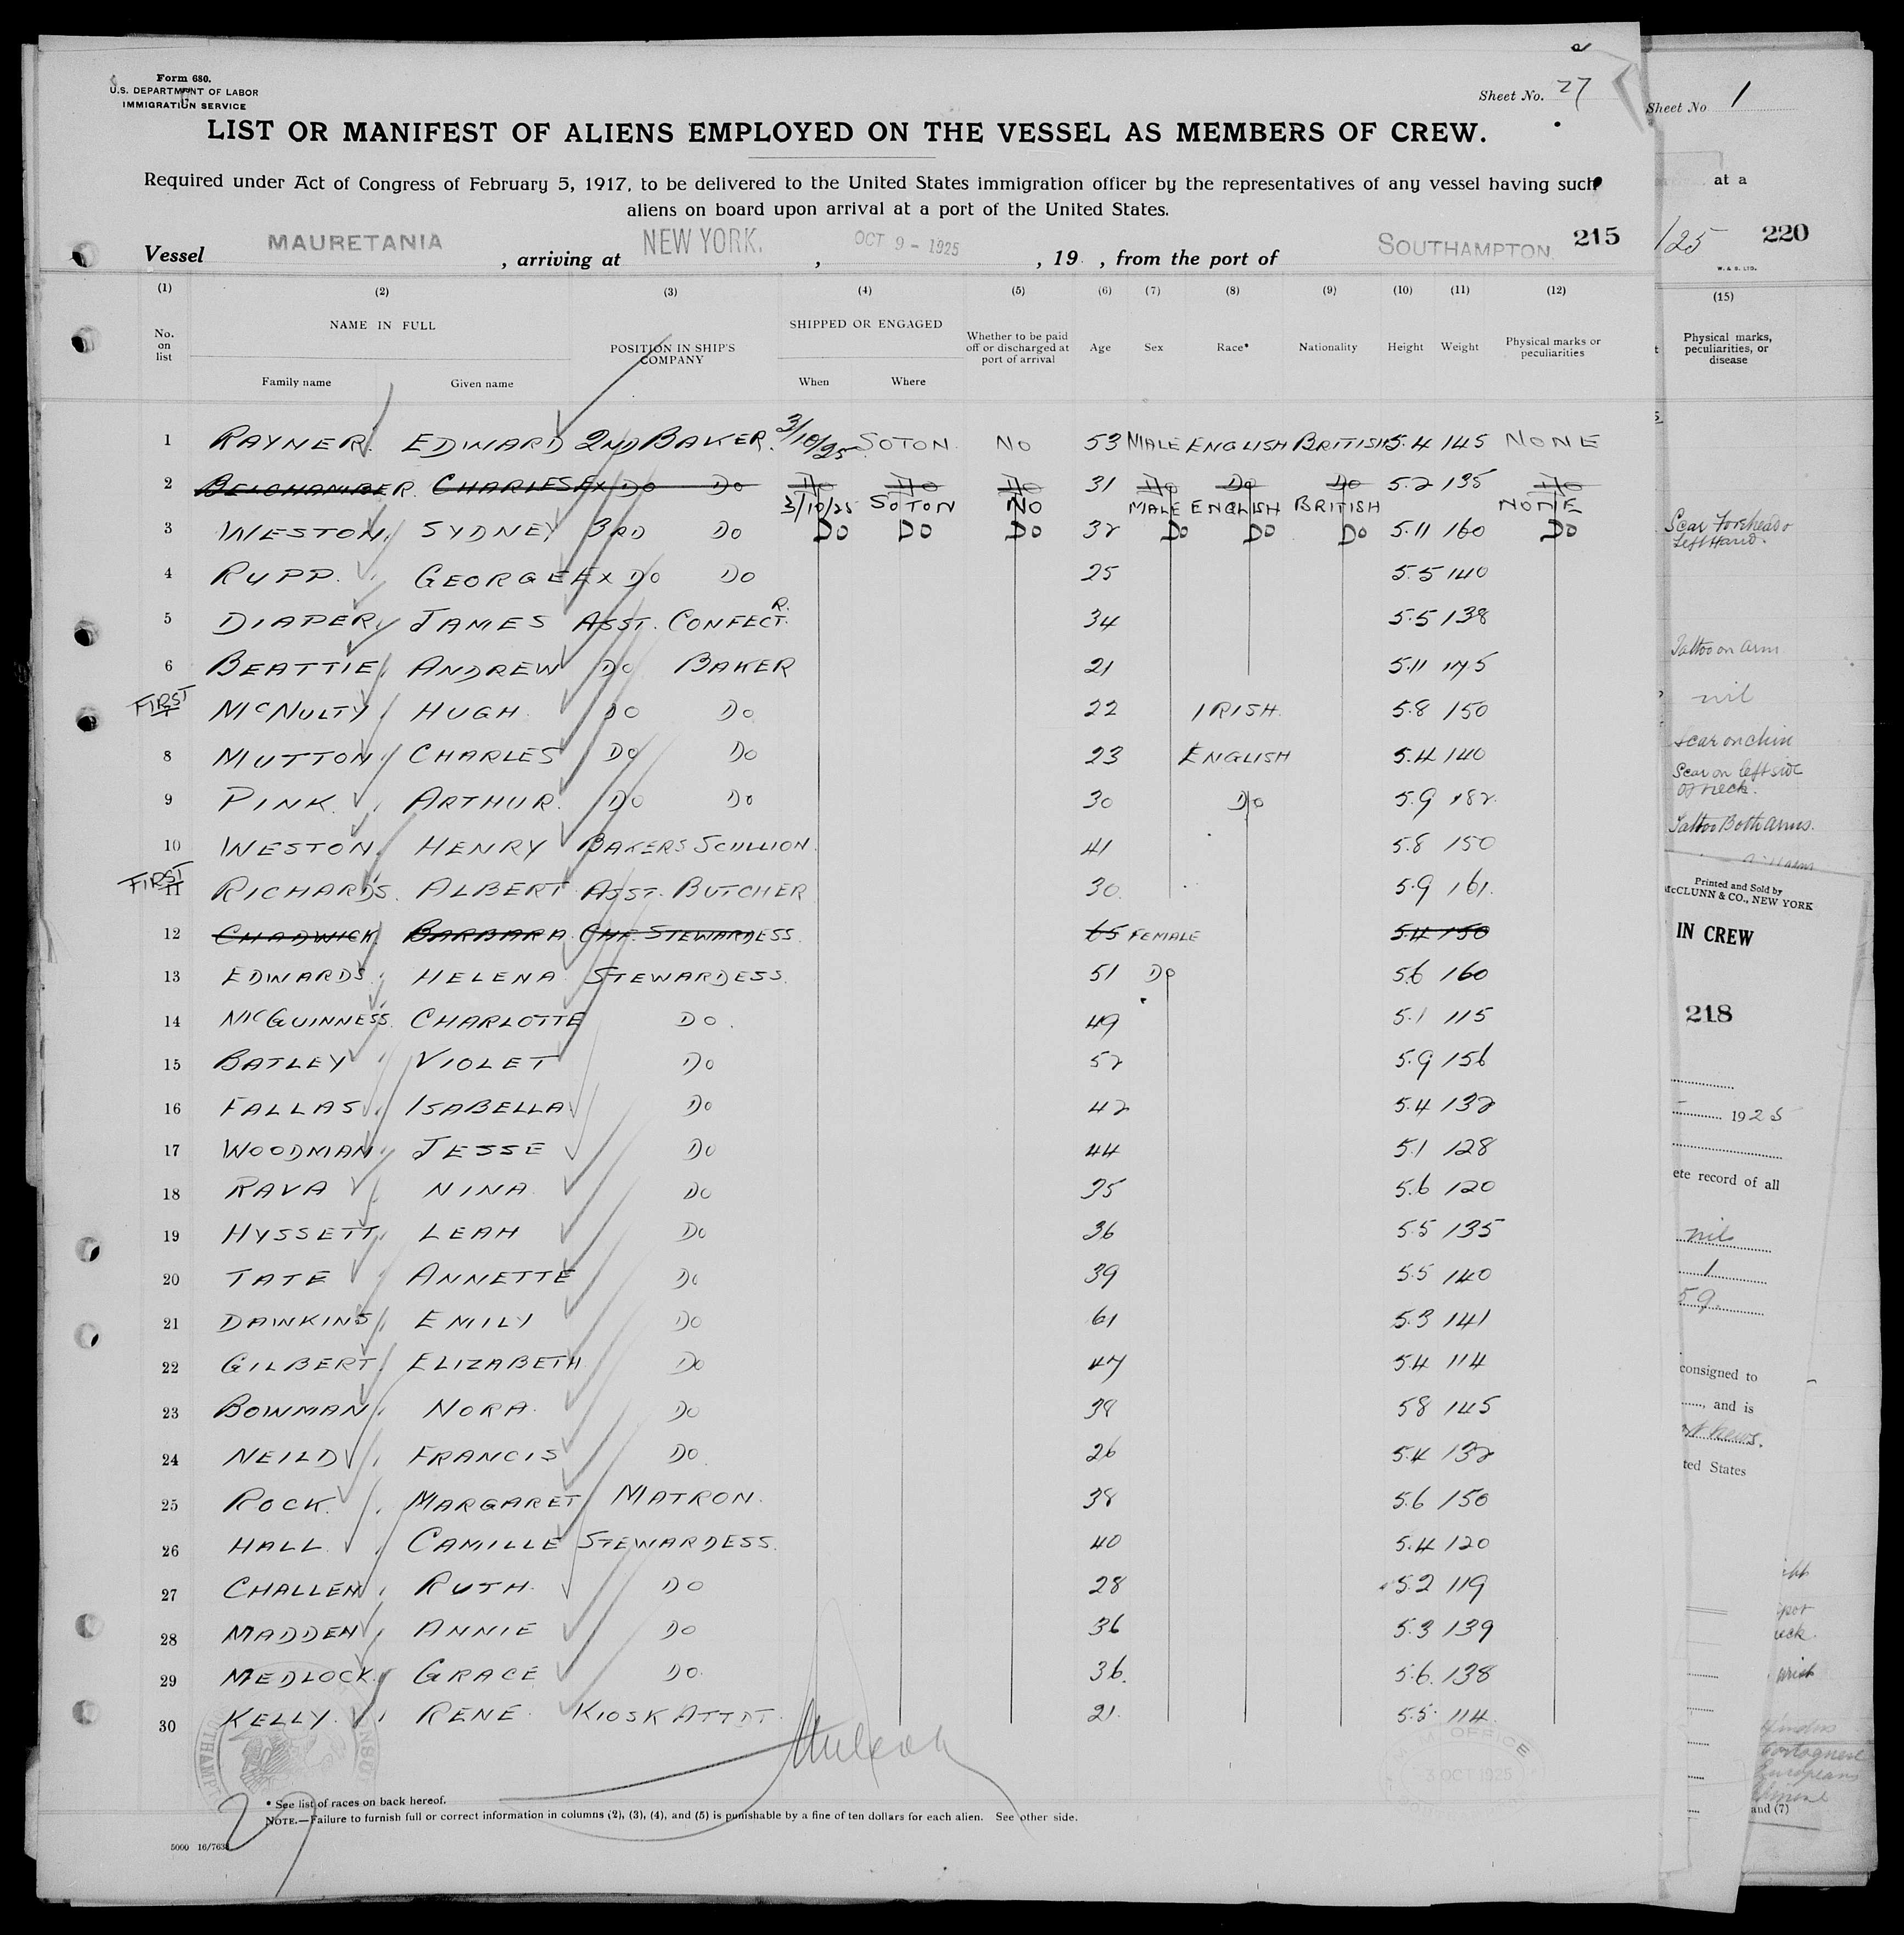 Form 680.
U.S. DEPARTMENT OF LABOR
IMMIGRATION SERVICE
Sheet No. 27
LIST OR MANIFEST OF ALIENS EMPLOYED ON THE VESSEL AS MEMBERS OF CREW.
Required under Act of Congress of February 5, 1917, to be delivered to the United States immigration officer by the representatives of any vessel having such
aliens on board upon arrival at a port of the United States.
Vessel MAURETANIA, arriving at NEW YORK, OCT 9 - 1925, 19 , from the port of SOUTHAMPTON. 215
(1) (2) (3) (4) (5) (6) (7) (8) (9) (10) (11) (12)
No. on list NAME IN FULL Family name Given name POSITION IN SHIP'S COMPANY SHIPPED OR ENGAGED When Where Whether to be paid off or discharged at port of arrival Age Sex Race* Nationality Height Weight Physical marks or peculiarities
1 RAYNER. EDWARD 2ND BAKER. 3/10/25 SOTON. NO 53 MALE ENGLISH BRITISH 5.4 145 NONE
2 BELCHAMBER. CHARLES EX DO DO DO DO DO 31 DO DO DO 5.2 135 DO
3/10/25 SOTON NO MALE ENGLISH BRITISH NONE
3 WESTON. SYDNEY 3RD DO DO DO DO 32 DO DO DO 5.11 160 DO
4 RUPP. GEORGE EX DO DO 25 5.5 140
5 DIAPER, JAMES ASST. CONFECTR. 34 5.5 138
6 BEATTIE, ANDREW DO BAKER 21 5.11 175
FIRST 7 MCNULTY, HUGH. DO DO 22 IRISH. 5.8 150
8 MUTTON, CHARLES DO DO 23 ENGLISH 5.4 140
9 PINK. ARTHUR. DO DO 30 DO 5.9 182.
10 WESTON. HENRY BAKERS SCULLION. 41 5.8 150
FIRST 11 RICHARDS. ALBERT ASST. BUTCHER 30. 5.9 161.
12 CHADWICK. BARBARA. CHF. STEWARDESS. 65 FEMALE 5.4 150
13 EDWARDS. HELENA STEWARDESS. 51 DO 5.6 160
14 MCGUINNESS. CHARLOTTE DO. 49 5.1 115
15 BATLEY VIOLET DO 52 5.9 156
16 FALLAS, ISABELLA DO 42 5.4 132
17 WOODMAN, JESSE DO 44 5.1 128
18 RAVA NINA. DO 35 5.6 120
19 HYSSETT, LEAH DO 36 5.5 135
20 TATE ANNETTE DO 39 5.5 140
21 DAWKINS, EMILY DO 61 5.3 141
22 GILBERT, ELIZABETH DO 47 5.4 114
23 BOWMAN, NORA. DO 38 5.8 145
24 NEILD, FRANCIS DO. 26 5.4 132
25 ROCK. MARGARET MATRON. 38 5.6 150
26 HALL. CAMILLE STEWARDESS. 40 5.4 120
27 CHALLEN, RUTH. DO 28 5.2 119
28 MADDEN, ANNIE DO 36 5.3 139
29 MEDLOCK, GRACE DO. 36. 5.6. 138
30 KELLY. RENE. KIOSK ATTDT. 21. 5.5. 114.
OFFICE
3 OCT 1925
* See list of races on back hereof.
NOTE.—Failure to furnish full or correct information in columns (2), (3), (4), and (5) is punishable by a fine of ten dollars for each alien. See other side.
27
5000 16/763
Sheet No 1
at a
/25 220
W. & S. LTD.
(15)
Physical marks, peculiarities, or disease
Scar Forehead
Left Hand.
Tattoo on arm
nil
scar on chin
Scar on left side
of neck.
Tattoo Both arms.
Printed and Sold by
McCLUNN & CO., NEW YORK
IN CREW
218
1925
ete record of all
nil
1
59.
consigned to
, and is
ted States
and (7)